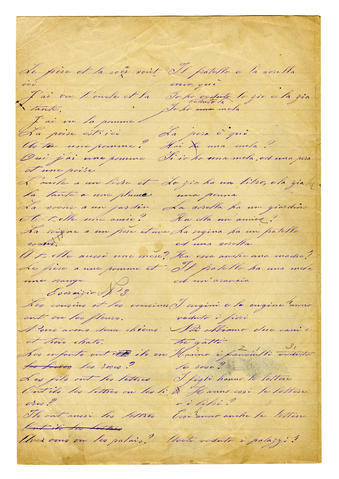 Le père et la soeur sont Il fratello e la sorella
ici sono qui
J'ai vu l'oncle et la Io ho veduto lo zio e la zia
tante.
J'ai vu la pomme Io ho veduto la mela
La poire est ici La pera è qui
As-tu une pomme? Hai una mela?
Oui j'ai une pomme Si io ho una mela, ed una pera
et une poire
L'oncle a un livre et Lo zio ha un libro, e la zia
la tante a une plume una penna
La soeur a un jardin La sorella ha un giardino
A-t-elle une amie? Ha ella un amica?
La reine a un père et une La regina ha un fratello
ed una sorella
A-t-elle aussi une mère? Ha essa anche una madre?
Le père a une pomme et Il fratello ha una mela
une orange ed un'arancia
Exercizio No 9
Les cousins et les cousines I cugini e le cugine hanno
ont vu les fleurs. veduto i fiori
Nous avons deux chiens Noi abbiamo due cani e
et trois chats. tre gatti
Les enfants ont ils vu Hanno i fanciulli veduto
les rois? le rose?
Les fils ont les lettres I figli hanno le lettere
Ont-ils les lettres ou les li Hanno essi le lettere
vres? o i libri?
Ils ont aussi les lettres Essi hanno anche le lettere
Avez vous vu les palais? Avete veduto i palazzi?